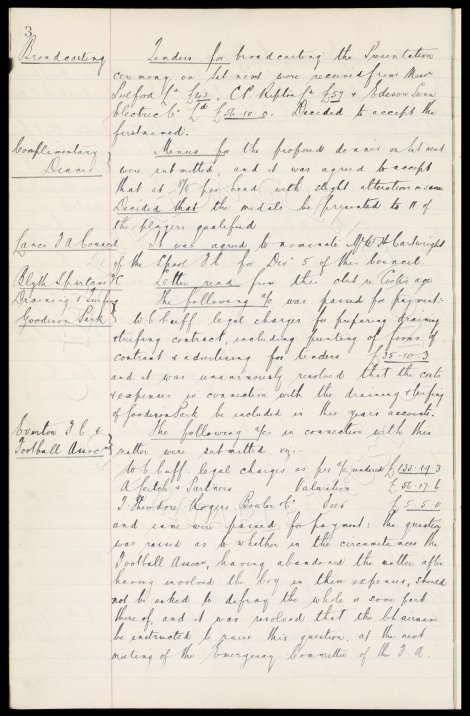 3
Broadcasting Tenders for broadcasting the Presentation
ceremony on Sat next were received from Messrs
£42, C.P. £57 & Edison Swan
Electric Co Ld £56-10-0. Decided to accept the
first named.
Complimentary Dinner Menus for the proposed dinner on Sat next
were submitted, and it was agreed to accept
that at per head with slight alterations in same
Decided that the medals be presented to 11 of
the players qualified
Lancs F A Council It was agreed to nominate Mr W H Cartwright
of the Lpool F.C. for Divn 5 of this Council.
Blyth Spartans FC Letter read from this club re Cook's age
Draining & turfing Goodison Park The following a/c was passed for payment:-
W C Cuff legal charges for preparing draining
& turfing contract, including printing of forms of
contract & advertising for tenders £35-10-3
and it was unanimously resolved that the costs
& expenses in connection with the draining & turfing
of Goodison Park be included in this years accounts.
Everton F C & Football Assocn The following a/cs in connection with this
matter were submitted viz:-
W C Cuff. legal charges as per a/c rendered £133-19-3
A & Partners Valuation £56-17-6
T. Theodore Rogers Bowler & Co Fees £5-5-0
and same were passed for payment: the question
was raised as to whether in the circumstances the
Football Assocn, having abandoned the matter after
having involved the Coy in these expenses, should
not be asked to defray the whole or some part
thereof, and it was resolved that the Chairman
be instructed to raise this question at the next
meeting of the Emergency Committee of the F.A.